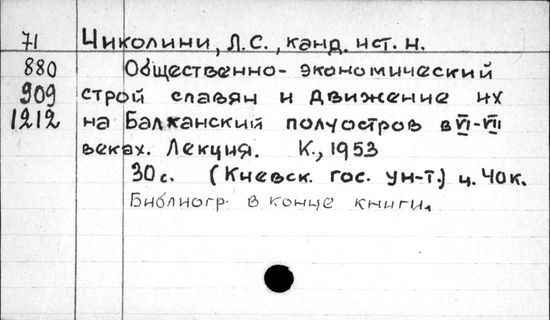 71 Чиколини, Л.С., канд. ист. н.
880 Общественно-экономический
909 строй славян и движение их
1212 на Балканский полуостров в VI-VII
веках. Лекция. К., 1953
30 с. (Киевск. гос. ун-т.) ц. 40 к.
Библиогр. в конце книги.